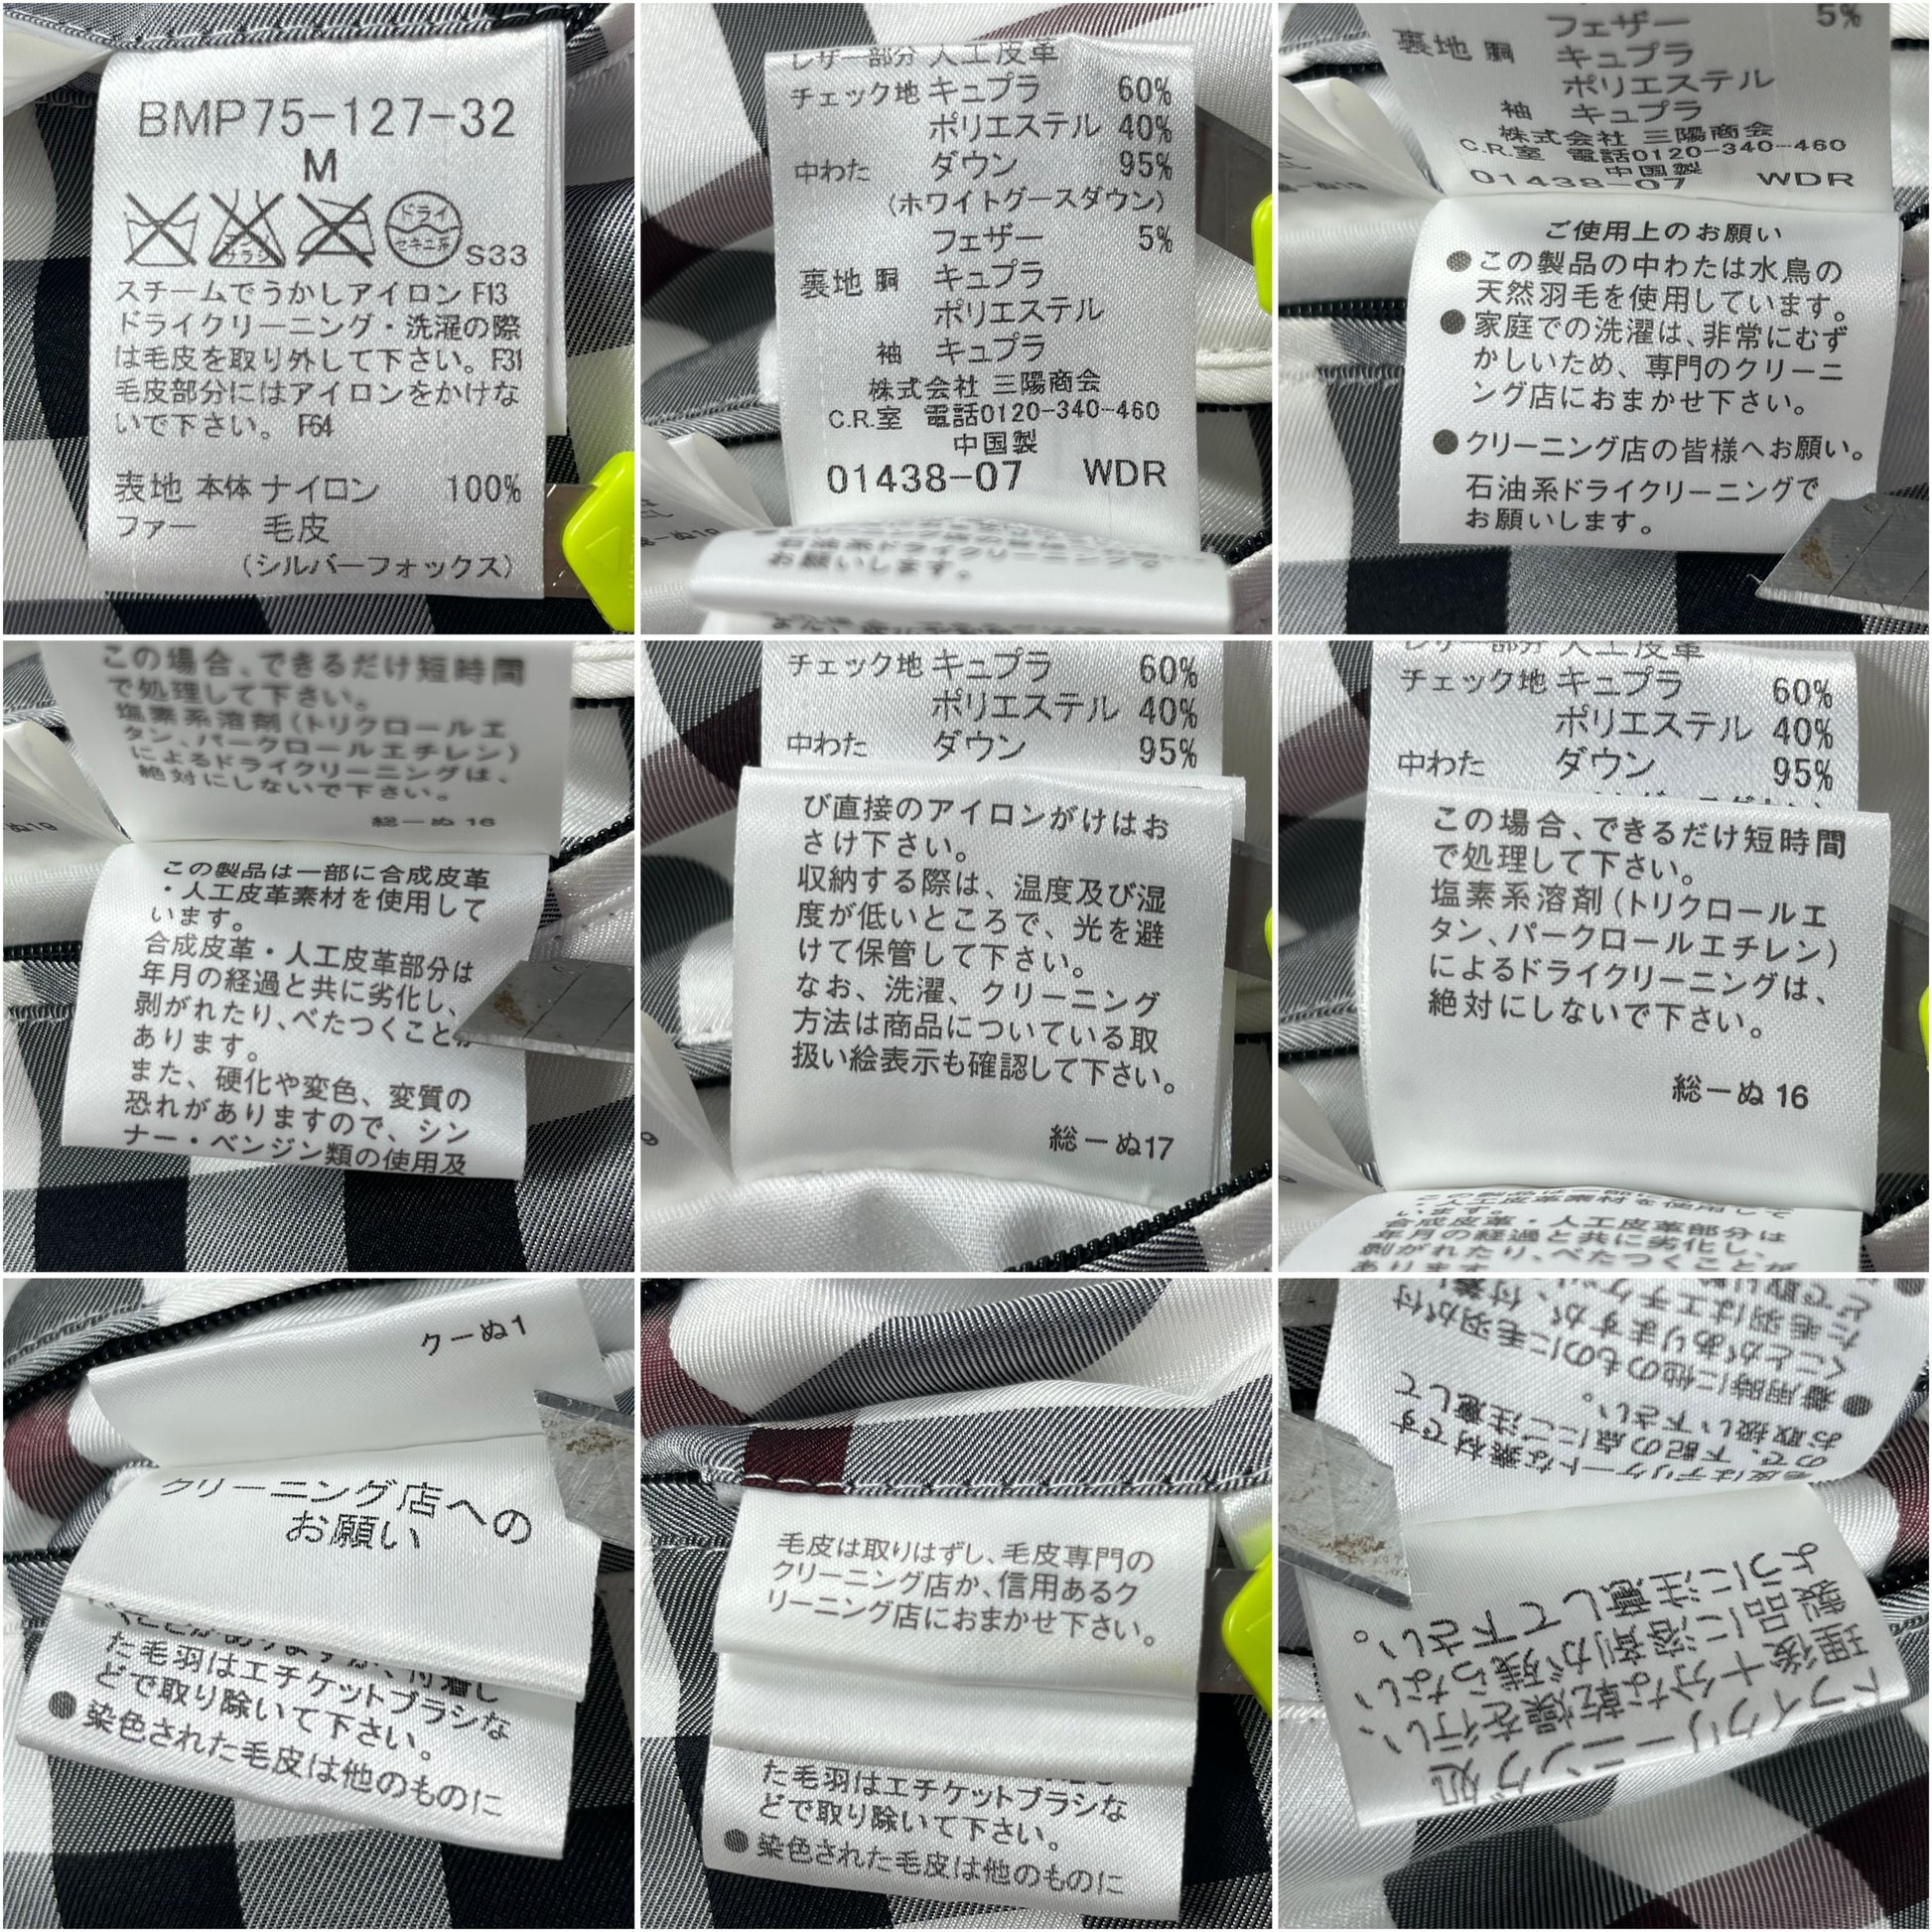 BMP75-127-32
M
ドライ
セキユ系
S33
スチームでうかしアイロン F13
ドライクリーニング・洗濯の際
は毛皮を取り外して下さい。F31
毛皮部分にはアイロンをかけな
いで下さい。 F64
表地 本体 ナイロン 100%
ファー 毛皮
(シルバーフォックス)
レザー部分 人工皮革
チェック地 キュプラ 60%
ポリエステル 40%
中わた ダウン 95%
(ホワイトグースダウン)
フェザー 5%
裏地 胴 キュプラ
ポリエステル
袖 キュプラ
株式会社 三陽商会
C.R.室 電話0120-340-460
中国製
01438-07 WDR
石油系ドライクリーニングで
お願いします。
フェザー 5%
裏地 胴 キュプラ
ポリエステル
袖 キュプラ
株式会社 三陽商会
C.R.室 電話0120-340-460
中国製
01438-07 WDR
ご使用上のお願い
●この製品の中わたは水鳥の
天然羽毛を使用しています。
●家庭での洗濯は、非常にむず
かしいため、専門のクリーニ
ング店におまかせ下さい。
●クリーニング店の皆様へお願い。
石油系ドライクリーニングで
お願いします。
この場合、できるだけ短時間
で処理して下さい。
塩素系溶剤(トリクロールエ
タン、パークロールエチレン)
によるドライクリーニングは、
絶対にしないで下さい。
総ーぬ 16
この製品は一部に合成皮革
・人工皮革素材を使用して
います。
合成皮革・人工皮革部分は
年月の経過と共に劣化し、
剥がれたり、べたつくことが
あります。
また、硬化や変色、変質の
恐れがありますので、シン
ナー・ベンジン類の使用及
チェック地 キュプラ 60%
ポリエステル 40%
中わた ダウン 95%
び直接のアイロンがけはお
さけ下さい。
収納する際は、温度及び湿
度が低いところで、光を避
けて保管して下さい。
なお、洗濯、クリーニング
方法は商品についている取
扱い絵表示も確認して下さい。
総ーぬ17
レザー部分 人工皮革
チェック地 キュプラ 60%
ポリエステル 40%
中わた ダウン 95%
この場合、できるだけ短時間
で処理して下さい。
塩素系溶剤(トリクロールエ
タン、パークロールエチレン)
によるドライクリーニングは、
絶対にしないで下さい。
総ーぬ 16
この製品は一部に合成皮革
・人工皮革素材を使用して
います。
合成皮革・人工皮革部分は
年月の経過と共に劣化し、
剥がれたり、べたつくことが
あります。
クーぬ1
クリーニング店への
お願い
くことがありますが、付着し
た毛羽はエチケットブラシな
どで取り除いて下さい。
●染色された毛皮は他のものに
毛皮は取りはずし、毛皮専門の
クリーニング店か、信用あるク
リーニング店におまかせ下さい。
た毛羽はエチケットブラシな
どで取り除いて下さい。
●染色された毛皮は他のものに
毛皮はデリケートな素材です
ので、下記の点にご注意して
お取扱い下さい。
●着用時に他のものに毛羽が付
くことがありますが、付着し
た毛羽はエチケットブラシな
どで取り除いて下さい。
ドライクリーニング処
理後十分な乾燥を行い、
製品に溶剤が残らない
ように注意して下さい。